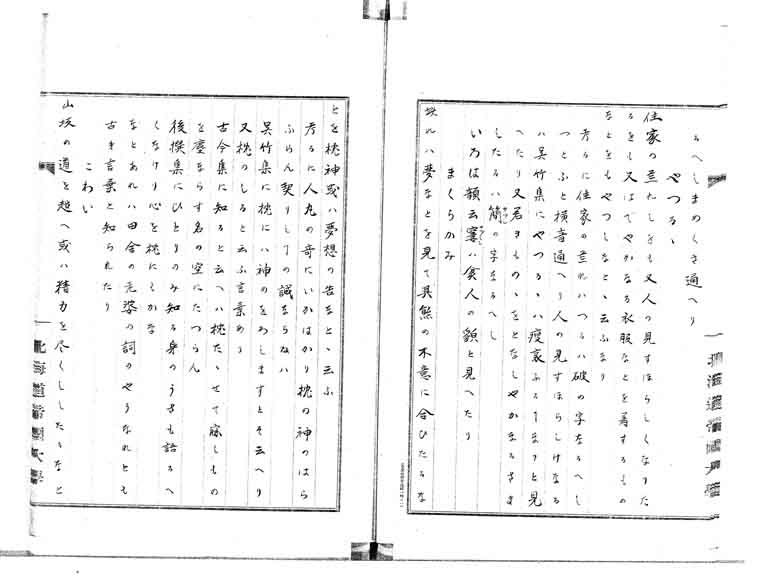 るへしまめくさ通へり
やつるゝ
住家の荒たしをも又人の見すほらしくなりた
るをも又はてやかなる衣服なとを着するもの
なとをもやつしなとゝ云ふなり
考るに住家の荒れハつるハ破の字なるへし
つとふと横音通へり人の見すほらしけなる
ハ呉竹集にやつるゝハ痩衰ふるすまりと見
へたり又君きものゝをとなしやかなるさま
したるハ簡の字なるへし
いろは韻云寠ハ貧人の貌と見へたり
まくらかみ
娘れハ夢なとを見て其態の不意に合ひたるな
とを枕神或ハ夢想の告なとゝ云ふ
考るに人丸の哥にいかはかり枕の神のはら
ふらん契りしての誠ならねハ
呉竹集に枕にハ神のをわしますとそ云へり
又枕のしると云ふ言葉あり
古今集に知ると云へハ枕たゝせて寐しもの
を塵ならす名の空にたつらん
後撰集にひとりのみ知る身のうさを語るへ
くなけり心を枕にしかな
なとあれハ田舎の老婆の詞のやうなれとも
古き言葉と知られたり
こわい
山坂の道を越へ或ハ精力を尽くししたるなと
北海道帝国大学